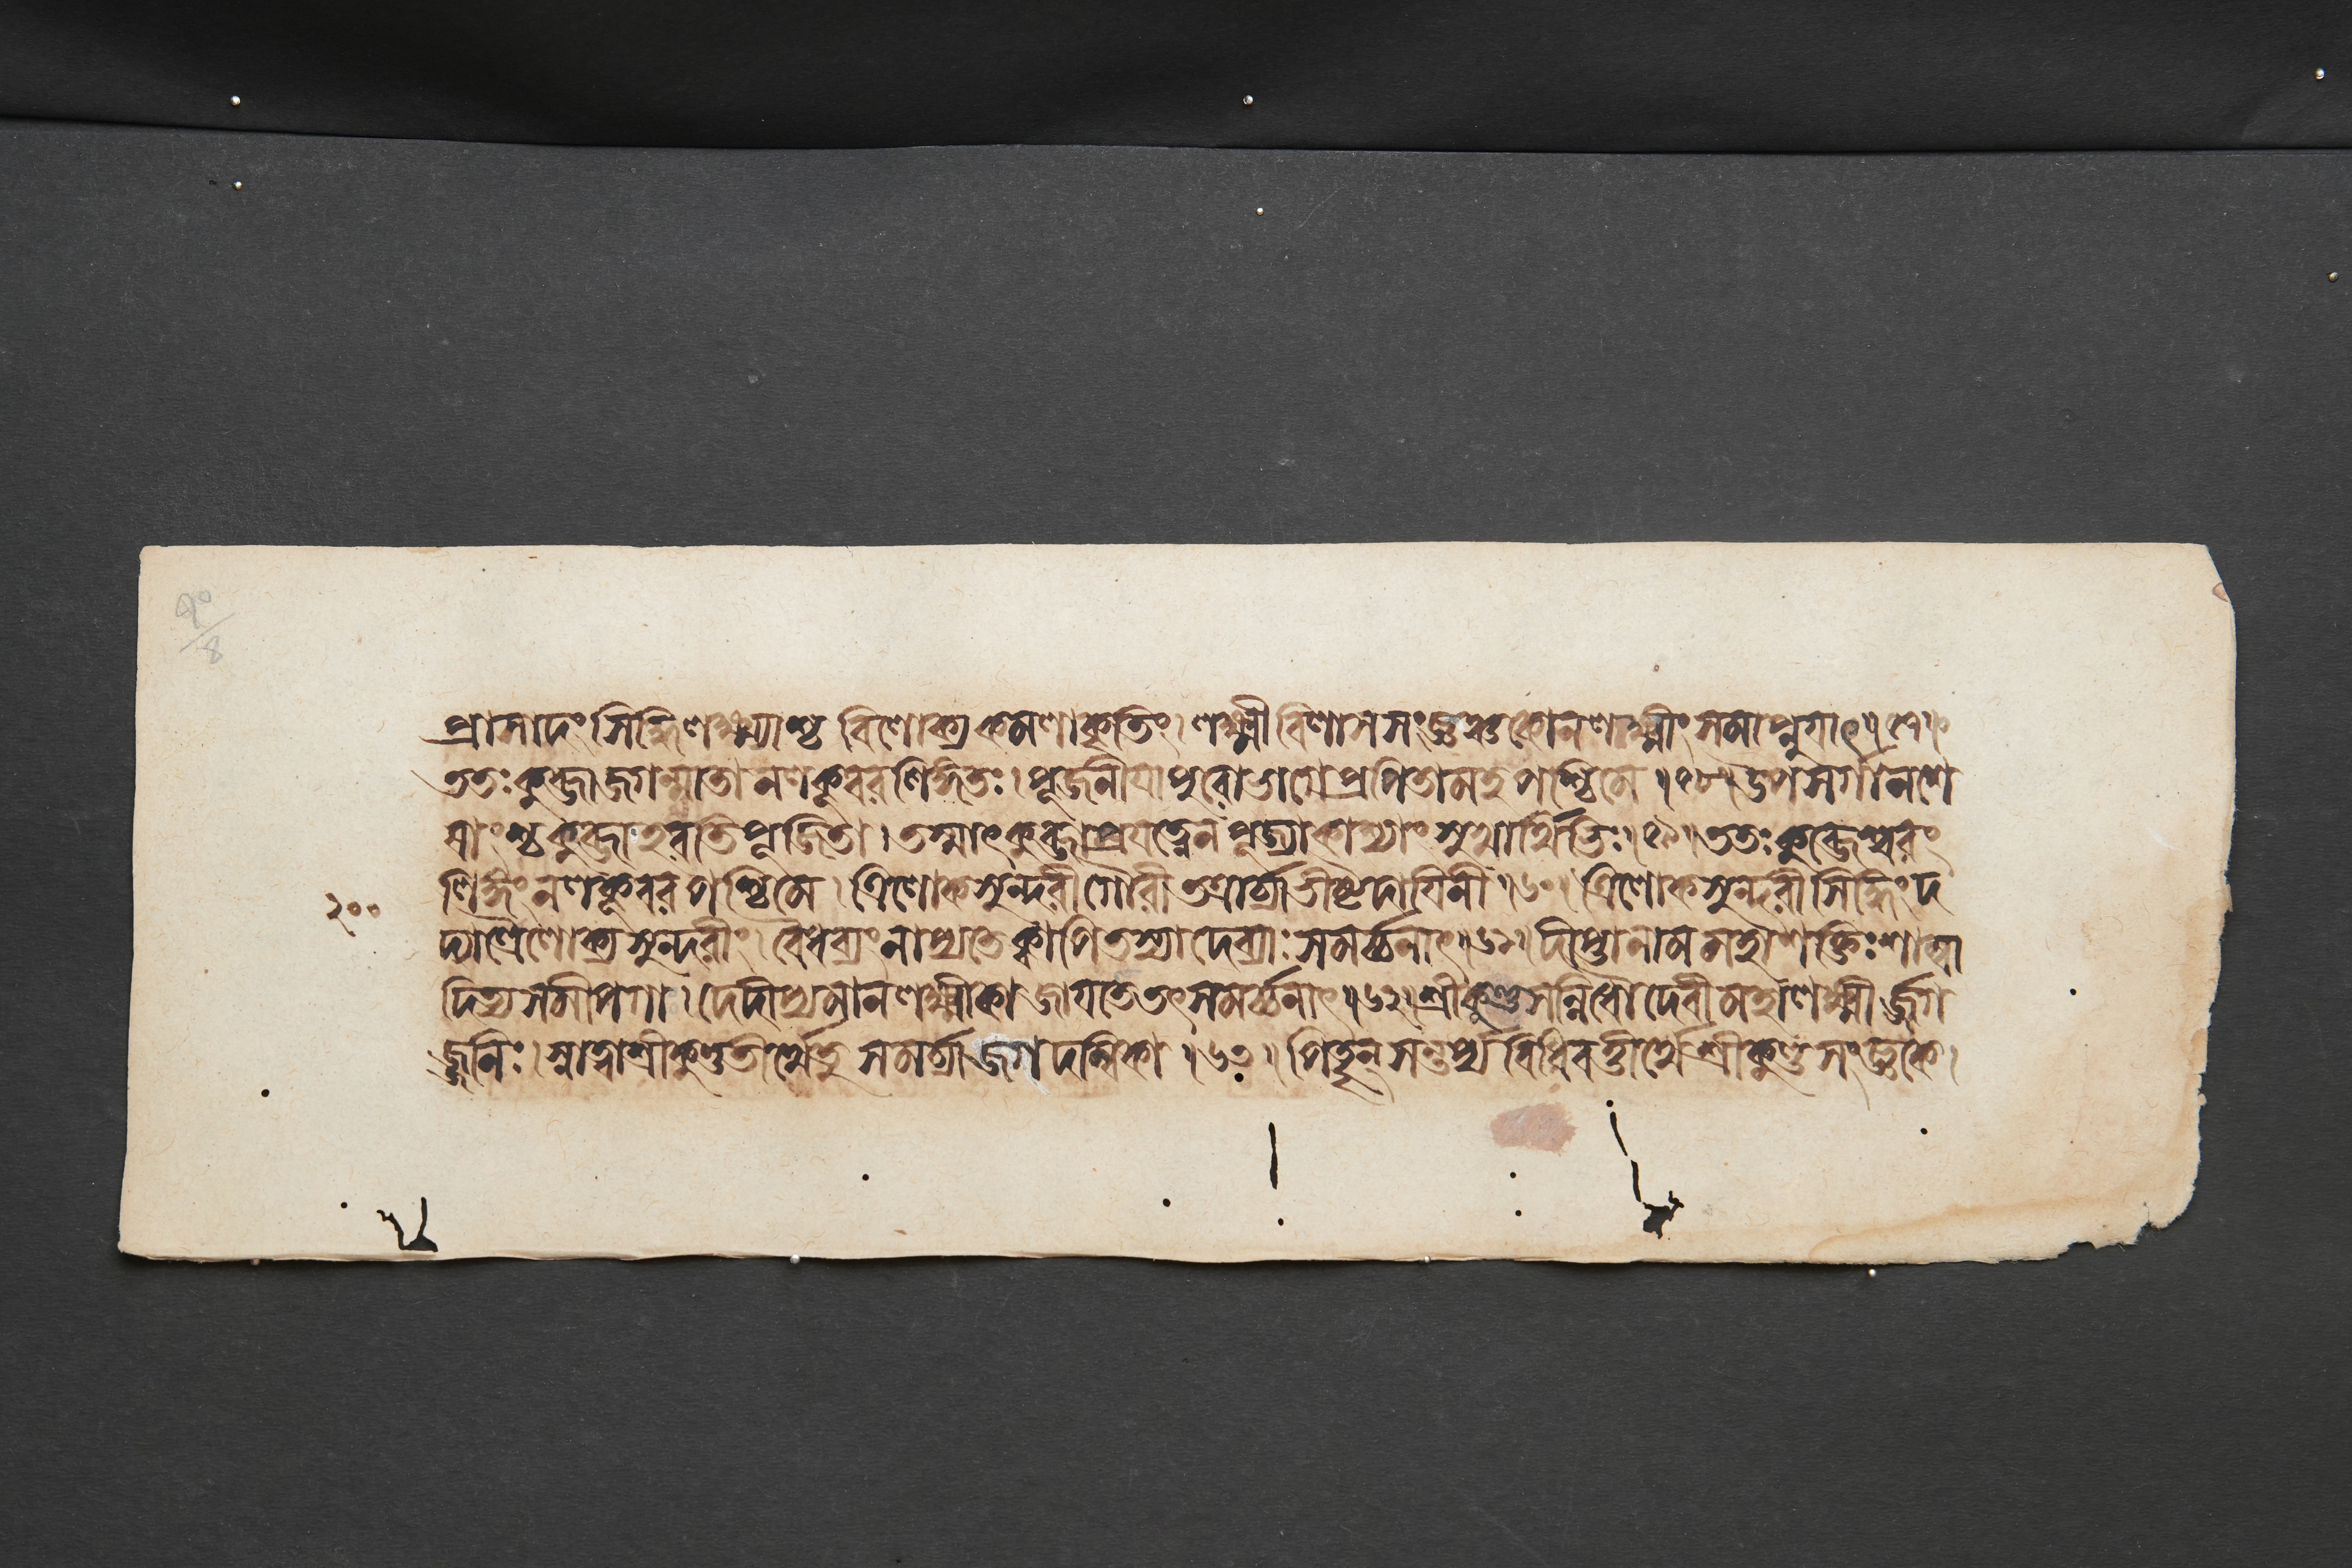 প্রাসাদং সিদ্ধিলক্ষ্ম্যাশ্চ বিলোক্য কমলাকৃতিং। লক্ষ্মীবিলাসসংজ্ঞঞ্চ কোন লক্ষ্মীং সমাপ্নুয়াৎ॥৫৭॥
ততঃ কুব্জা জগন্মাতা নলকূবরলিঙ্গতঃ। পূজনীয়া পুরোভাগে প্রপিতামহপশ্চিমে॥৫৮॥ উপসর্গানশে
ষাংশ্চ কুব্জা হরতি পূজিতা। তস্মাৎ কুব্জা প্রযত্নেন পূজ্যা কাশ্যাং শুভার্থিভিঃ॥৫৯॥ ততঃ কুব্জেশ্বরং
লিঙ্গং নলকূবরপশ্চিমে। ত্রিলোকসুন্দরী গৌরী তত্রার্চ্চ্যাভীষ্টদায়িনী॥৬০॥ ত্রিলোকসুন্দরী সিদ্ধিং দ
২০০
দ্যাত্ত্রৈলোক্যসুন্দরীং। বৈধব্যং নাপ্যতে ক্বাপি তস্যা দেব্যাঃ সমর্চ্চনাৎ॥৬১॥ দীপ্তা নাম মহাশক্তিঃ শাম্বা
দিত্যসমীপগা। দেদীপ্যমানলক্ষ্মীকা জায়তে তৎসমর্চ্চনাৎ॥৬২॥ শ্রীকুণ্ডসন্নিধৌ দেবী মহালক্ষ্মীর্জ্জগ
জ্জনিঃ। স্নাত্বা শ্রীকুণ্ডতীর্থে তু সমর্চ্চ্যা জগদম্বিকা॥৬৩॥ পিতৄন্ সন্তর্প্য বিধিবত্তীর্থে শ্রীকুণ্ডসংজ্ঞকে।